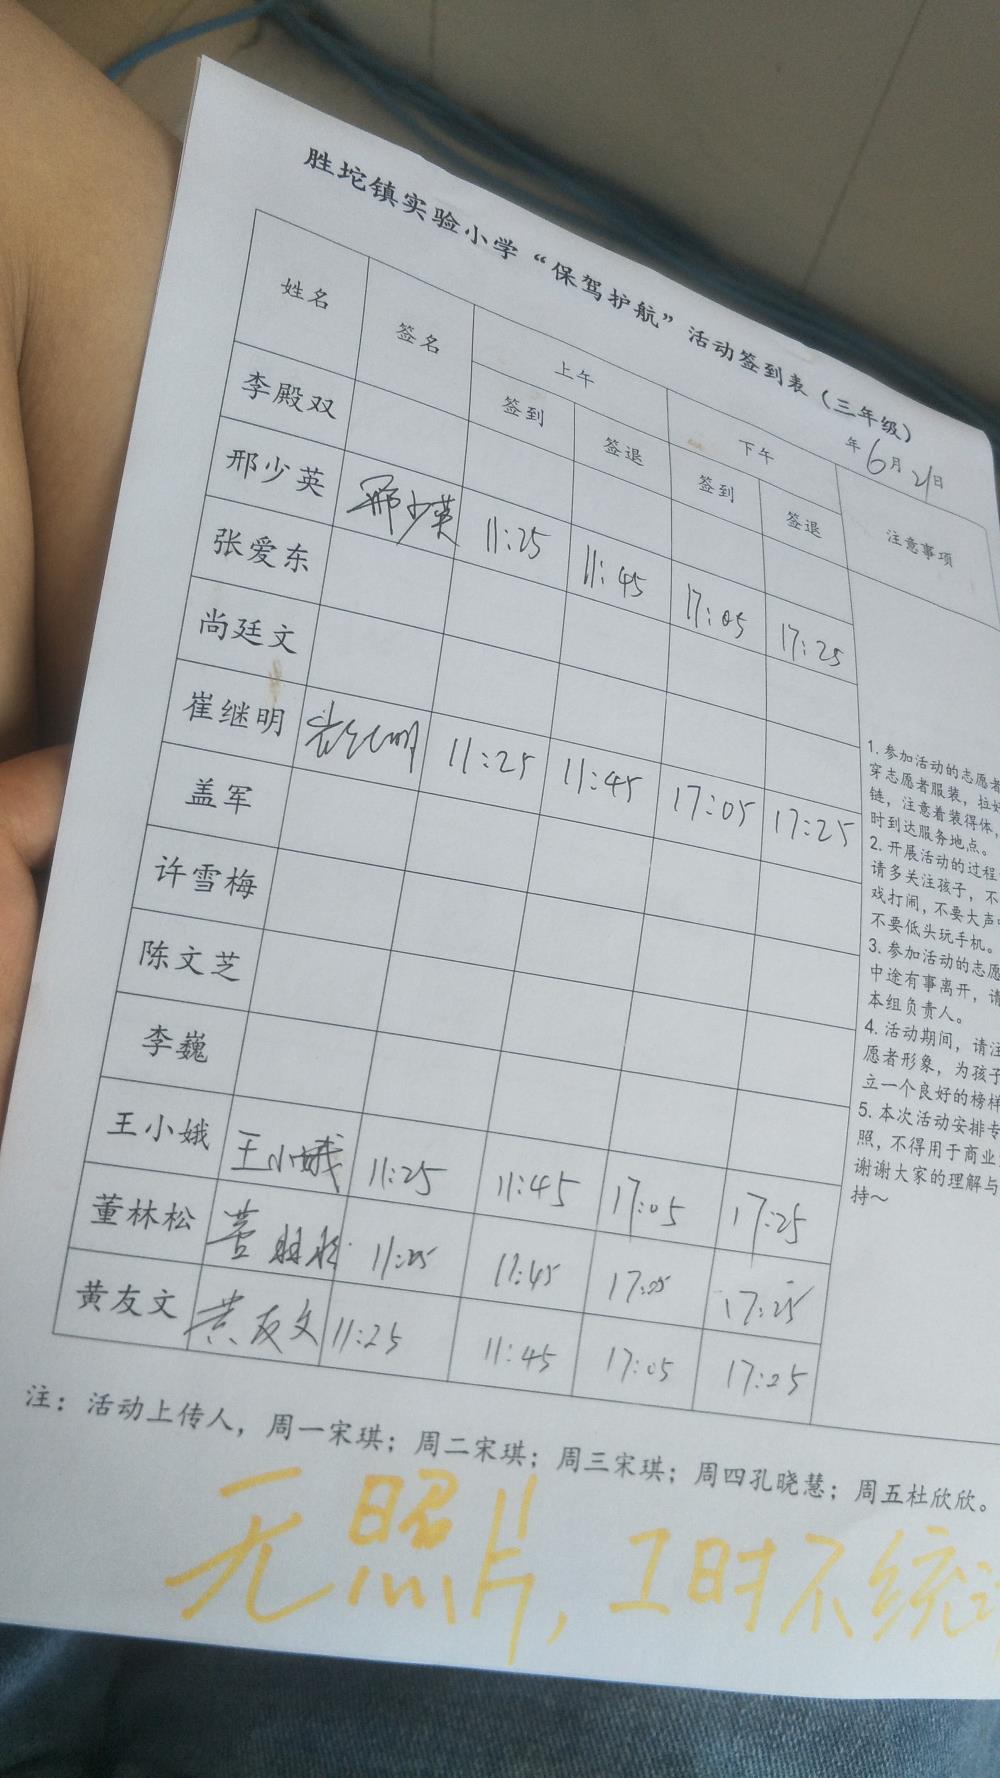 胜坨镇实验小学“保驾护航”活动签到表（三年级）
年6月21日
姓名 签名 上午 下午 注意事项
签到 签退 签到 签退
李殿双
邢少英 邢少英 11:25 11:45 17:05 17:25
张爱东
尚廷文
崔继明 崔继明 11:25 11:45 17:05 17:25
盖军
许雪梅
陈文芝
李巍
王小娥 王小娥 11:25 11:45 17:05 17:25
董林松 董林松 11:25 11:45 17:05 17:25
黄友文 黄友文 11:25 11:45 17:05 17:25
1. 参加活动的志愿者
穿志愿者服装，拉好
链，注意着装得体，
时到达服务地点。
2. 开展活动的过程
请多关注孩子，不
戏打闹，不要大声
不要低头玩手机。
3. 参加活动的志愿
中途有事离开，请
本组负责人。
4. 活动期间，请注
愿者形象，为孩子
立一个良好的榜样
5. 本次活动安排专
照，不得用于商业
谢谢大家的理解与
持～
注：活动上传人，周一宋琪；周二宋琪；周三宋琪；周四孔晓慧；周五杜欣欣。
无照片，工时不统计